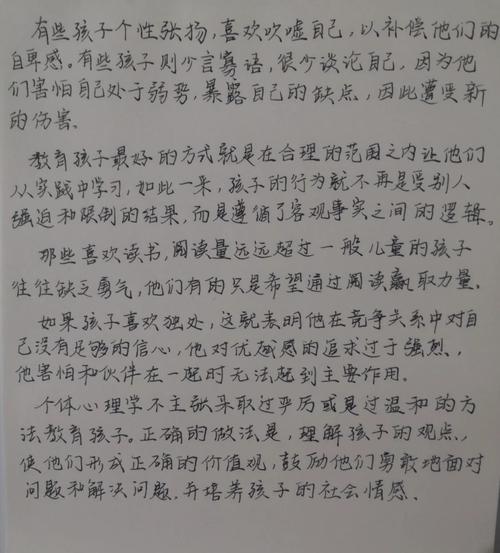 有些孩子个性张扬,喜欢吹嘘自己,以补偿他们的
自卑感。有些孩子则少言寡语,很少谈论自己,因为他
们害怕自己处于弱势,暴露自己的缺点,因此遭受新
的伤害。
教育孩子最好的方式就是在合理的范围之内让他们
从实践中学习,如此一来,孩子的行为就不再是受别人
强迫和限制的结果,而是遵循了客观事实之间的逻辑。
那些喜欢读书,阅读量远远超过一般儿童的孩子
往往缺乏勇气,他们有的只是希望通过阅读赢取力量。
如果孩子喜欢独处,这就表明他在竞争关系中对自
己没有足够的信心,他对优越感的追求过于强烈,
他害怕和伙伴在一起时无法起到主要作用。
个体心理学不主张采取过严厉或是过温和的方
法教育孩子。正确的做法是,理解孩子的观点,
使他们形成正确的价值观,鼓励他们勇敢地面对
问题和解决问题.并培养孩子的社会情感.